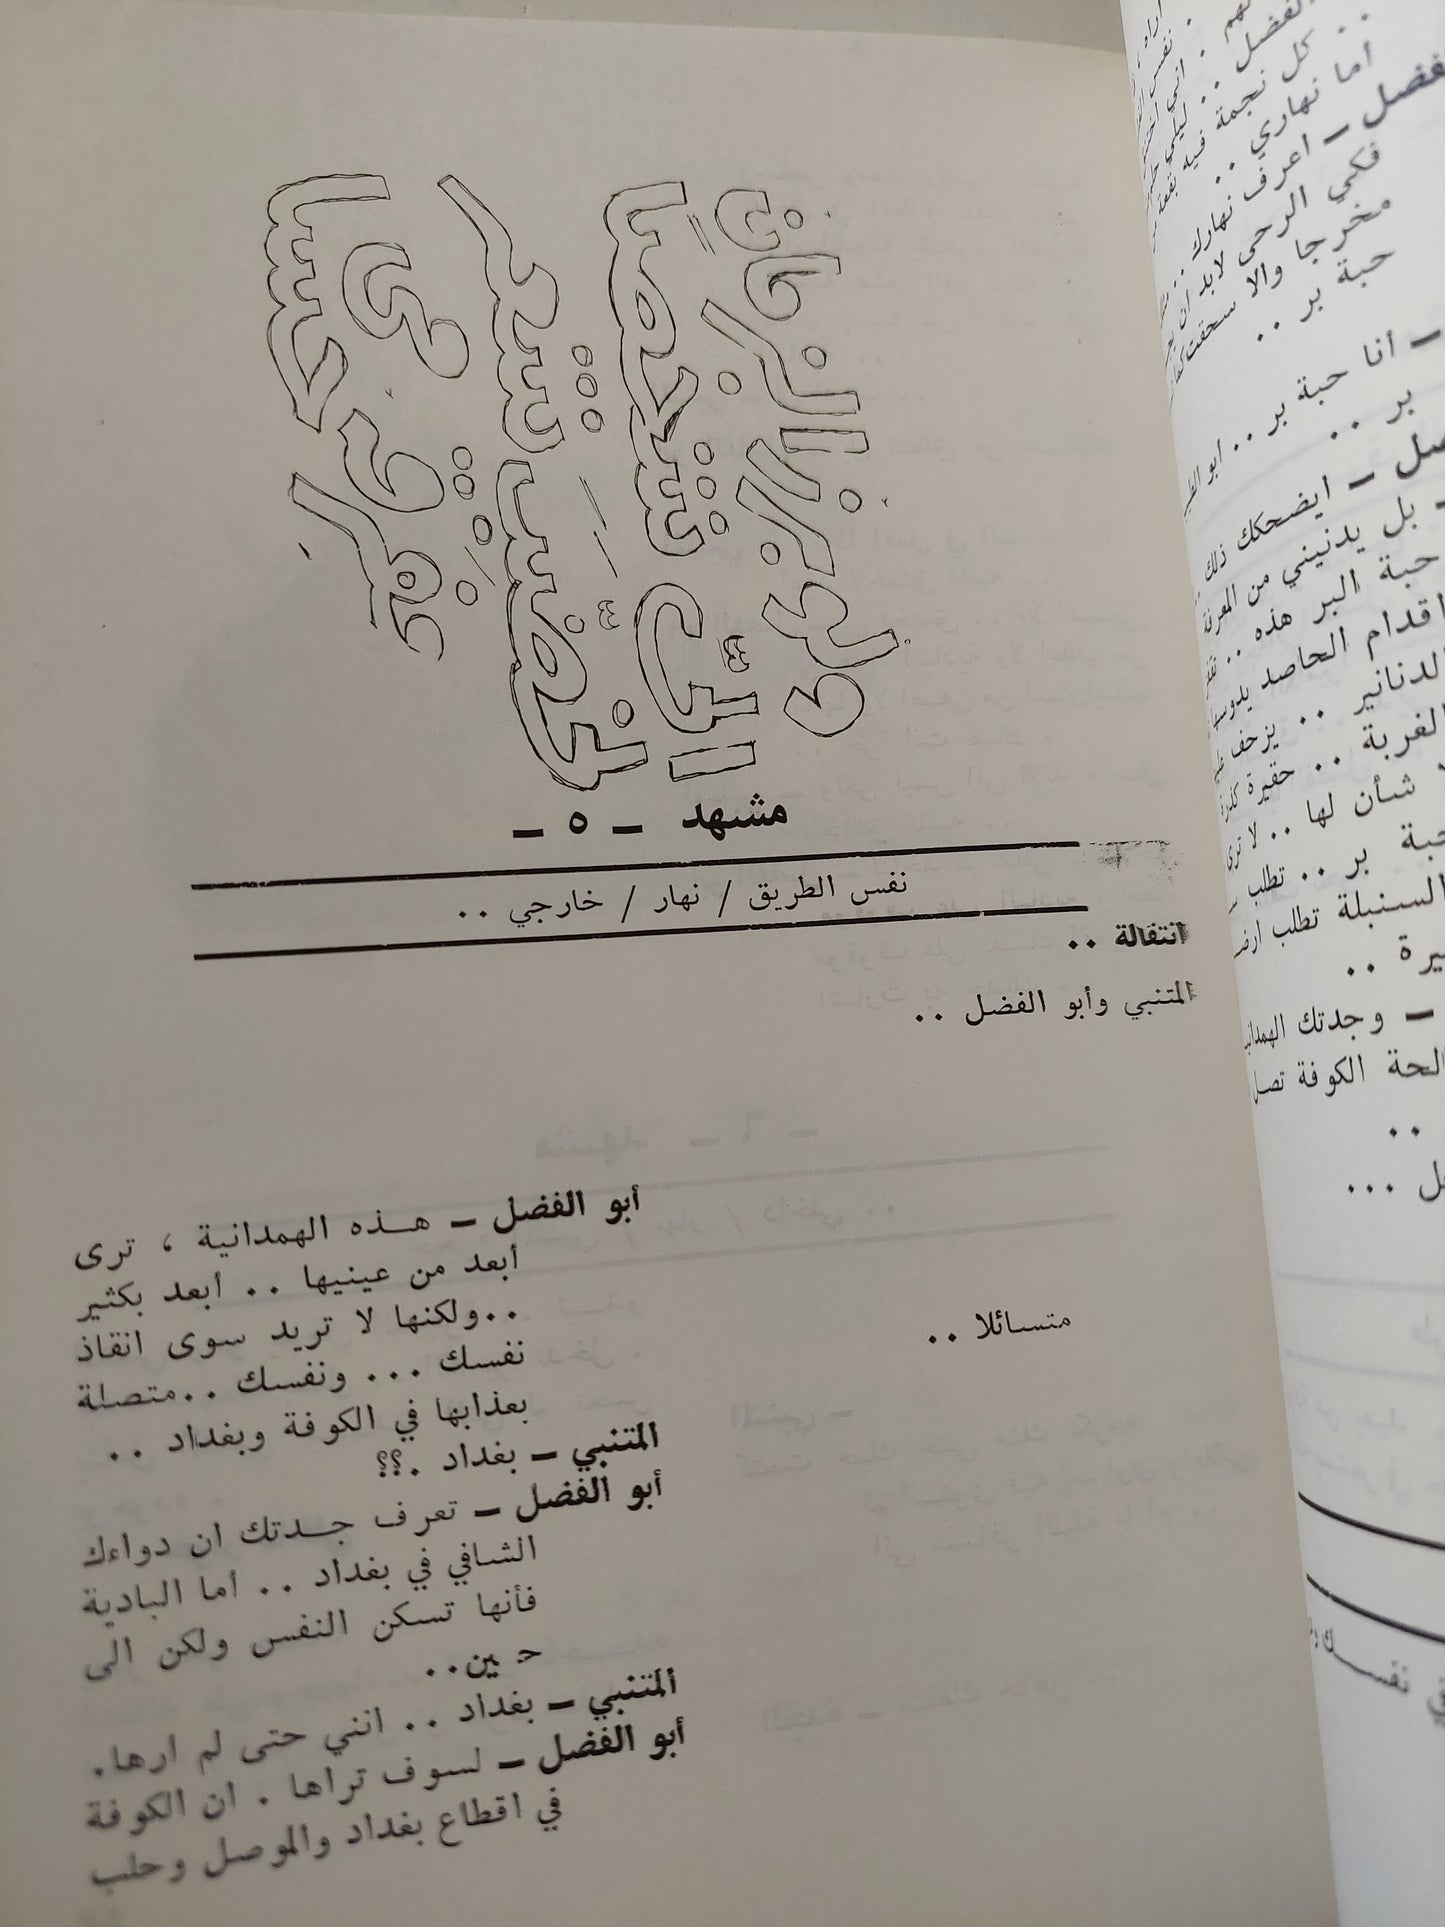 ولو برز الزمان
إليَّ شخصًا
لخضّب شعر
مفرقه حسامي
مشهد - ٥ -
نفس الطريق / نهار / خارجي ..
انتقالة ..
المتنبي وأبو الفضل ..
أبو الفضل - هذه الهمدانية ، ترى
أبعد من عينيها .. ابعد بكثير
..ولكنها لا تريد سوى انقاذ
نفسك ... ونفسك ..متصلة
بعذابها في الكوفة وبغداد ..
متسائلا ..
المتنبي - بغداد .؟؟
أبو الفضل - تعرف جدتك ان دواءك
الشافي في بغداد .. أما البادية
فأنها تسكن النفس ولكن الى
حين..
المتنبي - بغداد .. انني حتى لم ارها.
أبو الفضل - لسوف تراها . ان الكوفة
في اقطاع بغداد والموصل وحلب
كل نجمة فيه
أما نهاري ..
- اعرف نهارك ..
فكي الرحى لابد ان
مخرجا والا سحقت
حبة بر ..
- أنا حبة بر .. ابو
بر ..
- ايضحكك ذلك
- بل يدنيني من المعرفة
حبة البر هذه ..
اقدام الحاصد يدوسها
الدنانير .. يزحف
الغربة .. حقيرة
شأن لها .. لا ترى
حبة بر .. تطلب
السنبلة تطلب
..
- وجدتك
الكوفة تصل
..
...